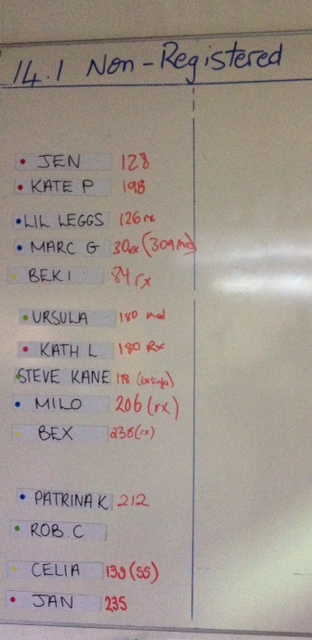 14.1 Non-Registered
JEN 128
KATE P 198
LIL LEGGS 126 rx
MARC G 30rx (309 md)
BEKI 84 rx
URSULA 180 mod
KATH L 180 Rx
STEVE KANE 178
MILO 206 (rx)
BEX 238 (rx)
PATRINA K 212
ROB.C
CELIA 139 (SS)
JAN 235